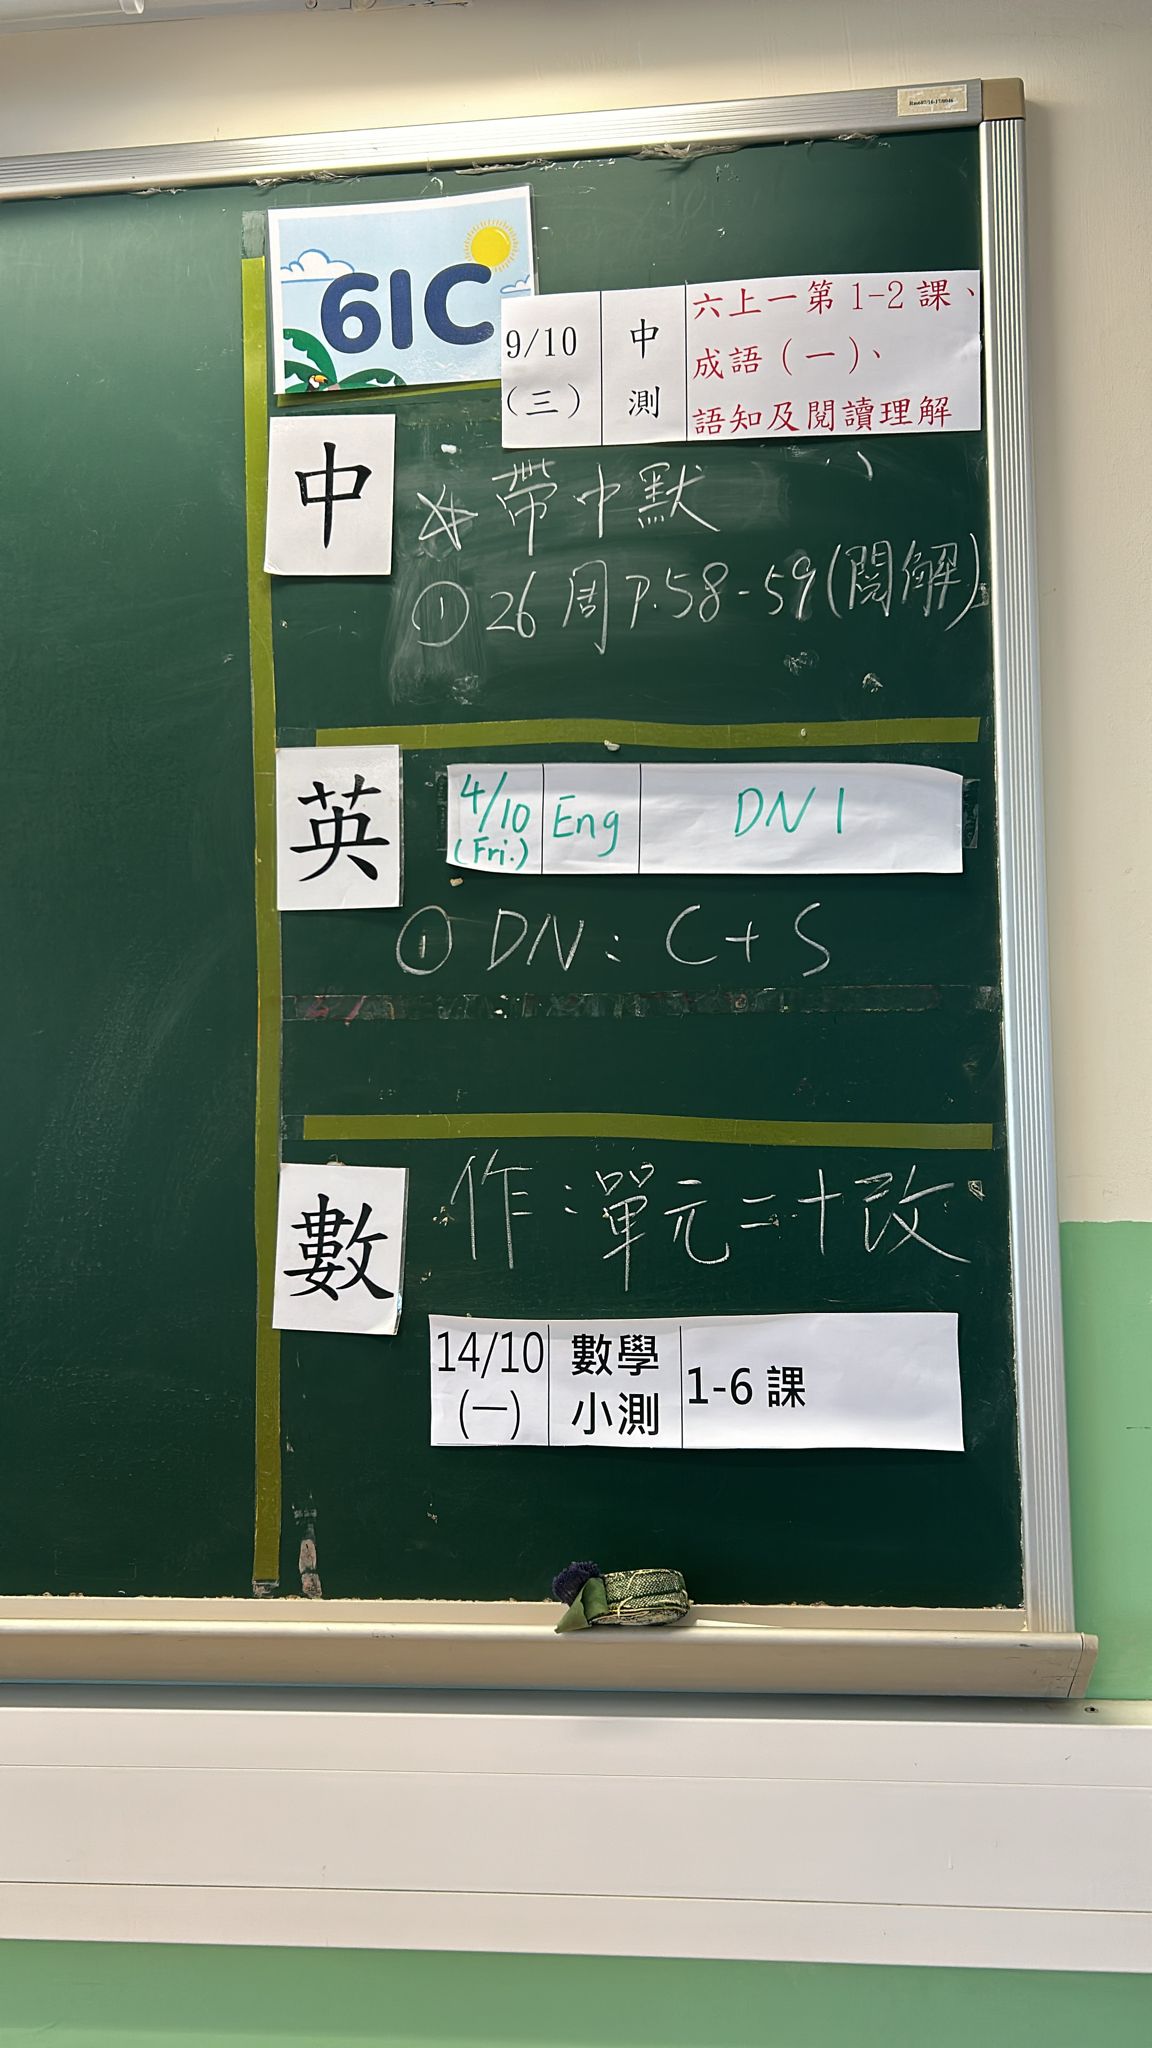 6IC
9/10
(三)
中
測
六上一第1-2課、
成語(一)、
語知及閱讀理解
中
☆帶中默
① 26周 P.58-59(閱解)
英
4/10
(Fri.)
Eng
DN 1
① DN: C+S
數
作:單元二十改
14/10
(一)
數學
小測
1-6課